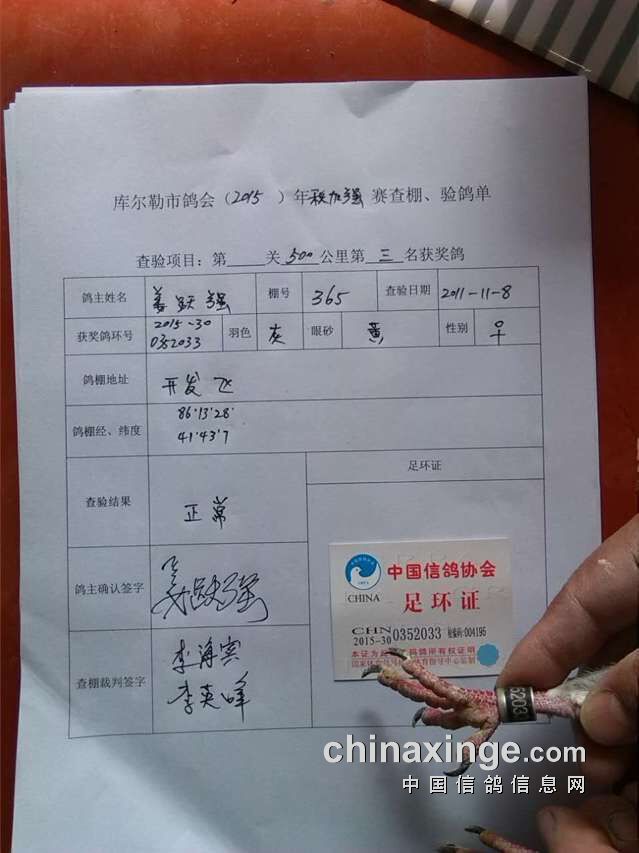 库尔勒市鸽会（2015 ）年秋加强赛查棚、验鸽单
查验项目：第 关 500 公里第 三 名获奖鸽
鸽主姓名 姜跃强 棚号 365 查验日期 2011-11-8
获奖鸽环号 2015-30 0352033 羽色 灰 眼砂 黄 性别 ♀
鸽棚地址 开发
鸽棚经、纬度 86·13'28' 41·43'7
足环证
查验结果 正常
鸽主确认签字 姜跃强
查棚裁判签字 李海宾
李英峰
中国信鸽协会
CHINA
足环证
CHN
2015-30 0352033 检编码:004196
chinaxinge.com
中国信鸽信息网